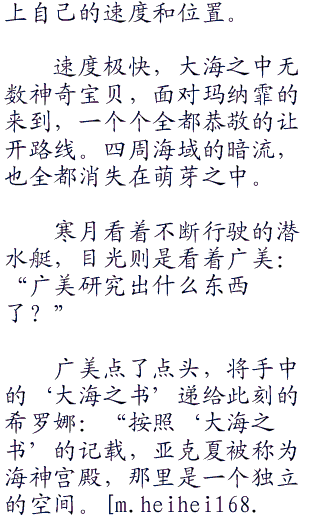 上自己的速度和位置。
速度极快，大海之中无
数神奇宝贝，面对玛纳霏的
来到，一个个全都恭敬的让
开路线。四周海域的暗流，
也全都消失在萌芽之中。
寒月看着不断行驶的潜
水艇，目光则是看着广美：
“广美研究出什么东西
了？”
广美点了点头，将手中
的‘大海之书’递给此刻的
希罗娜：“按照‘大海之
书’的记载，亚克夏被称为
海神宫殿，那里是一个独立
的空间。[m.heihei168.